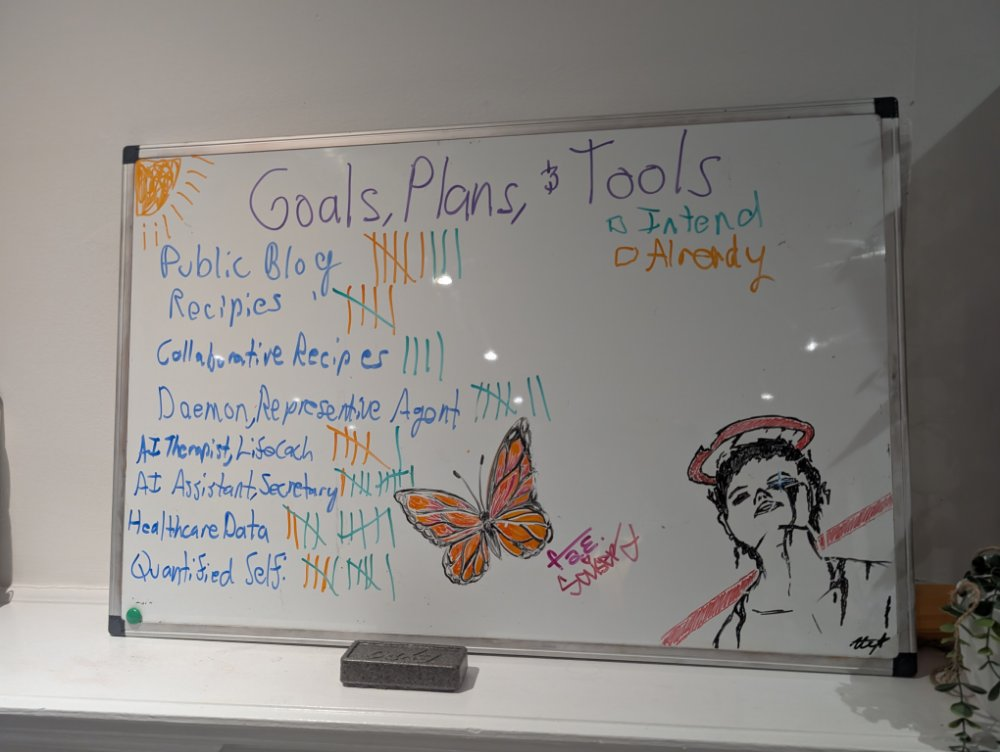 Goals, Plans, & Tools
Intend
Already
Public Blog
Recipies
Collaborative Recipes
Daemon, Representive Agent
AI Therapist, Lifecoach
AI Assistant, Secretary
Healthcare Data
Quantified Self